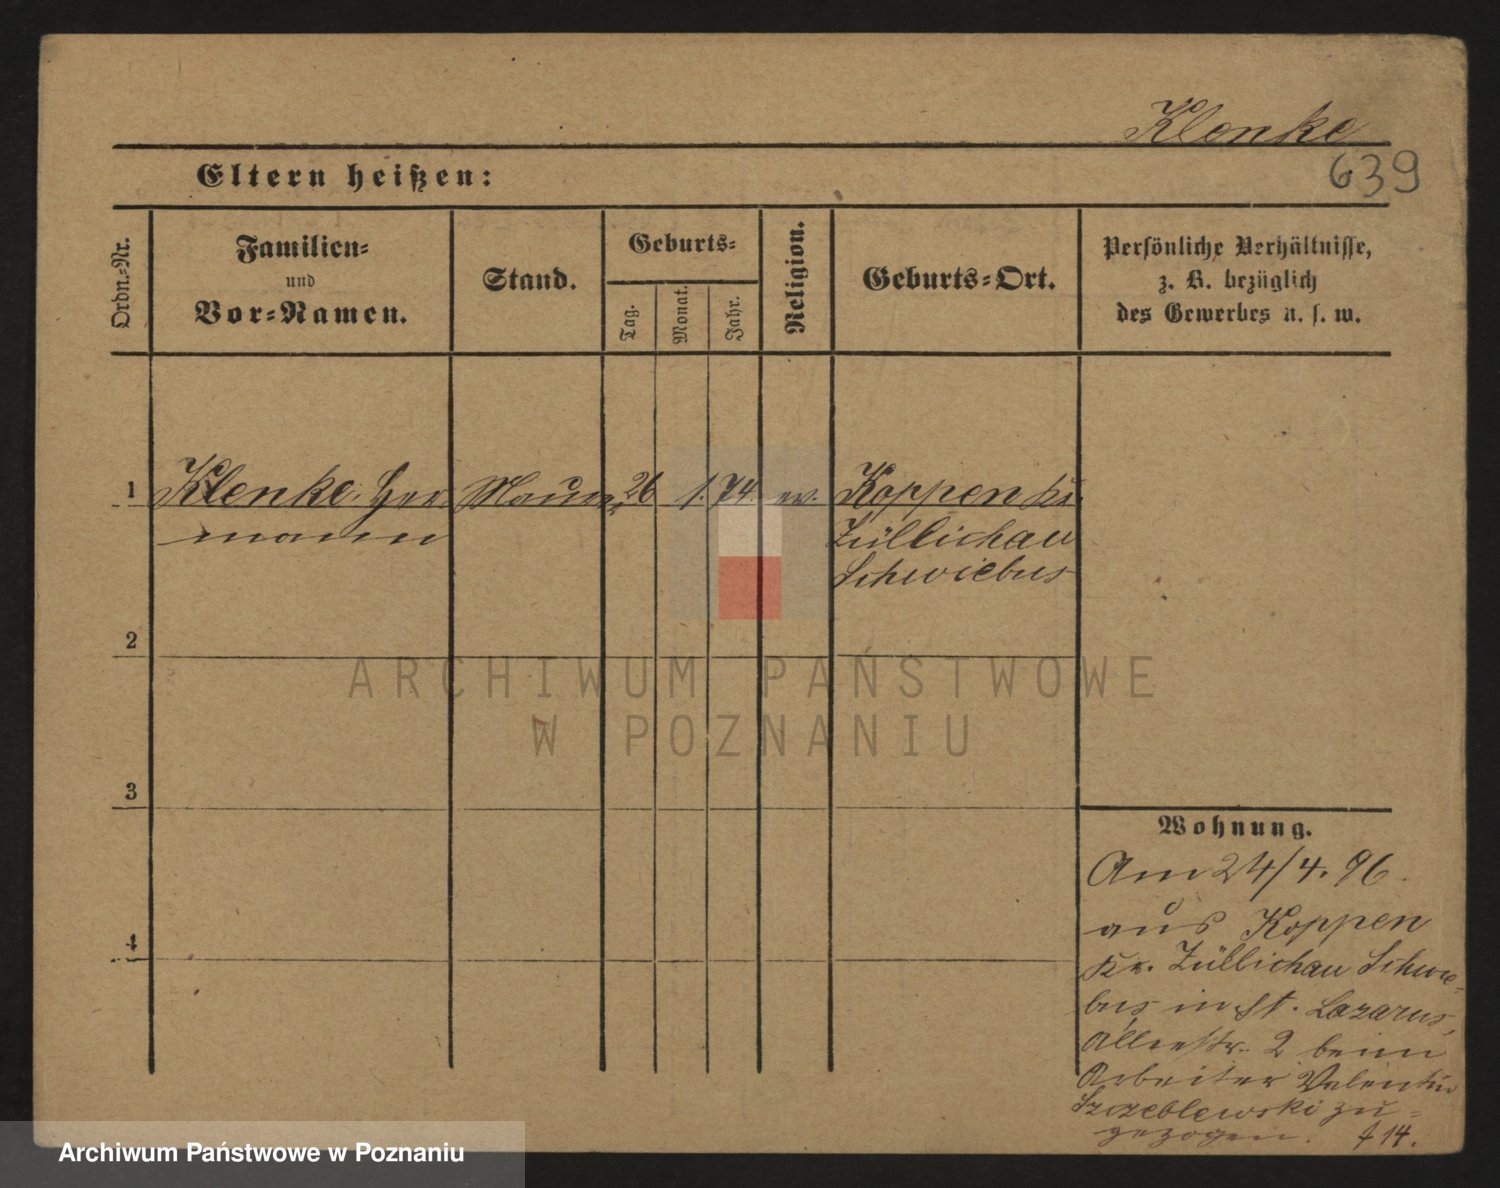 Klenke
639
Eltern heißen:
Ordn.-Nr.
Familien-
und
Vor-Namen.
Stand.
Geburts-
Tag.
Monat.
Jahr.
Religion.
Geburts-Ort.
Persönliche Verhältnisse,
z. B. bezüglich
des Gewerbes u. s. w.
1
Klenke Her
mann
Maurer
26
1.
74.
ev.
Koppen Kr.
Züllichau
Schwiebus
2
3
4
Wohnung.
Am 24/4. 96.
aus Koppen
Kr. Züllichau Schwie-
bus in St. Lazarus,
Alleestr. 2 beim
Arbeiter Valentin
Szczeblewski zu-
gezogen. 14.
ARCHIWUM PAŃSTWOWE
W POZNANIU
Archiwum Państwowe w Poznaniu